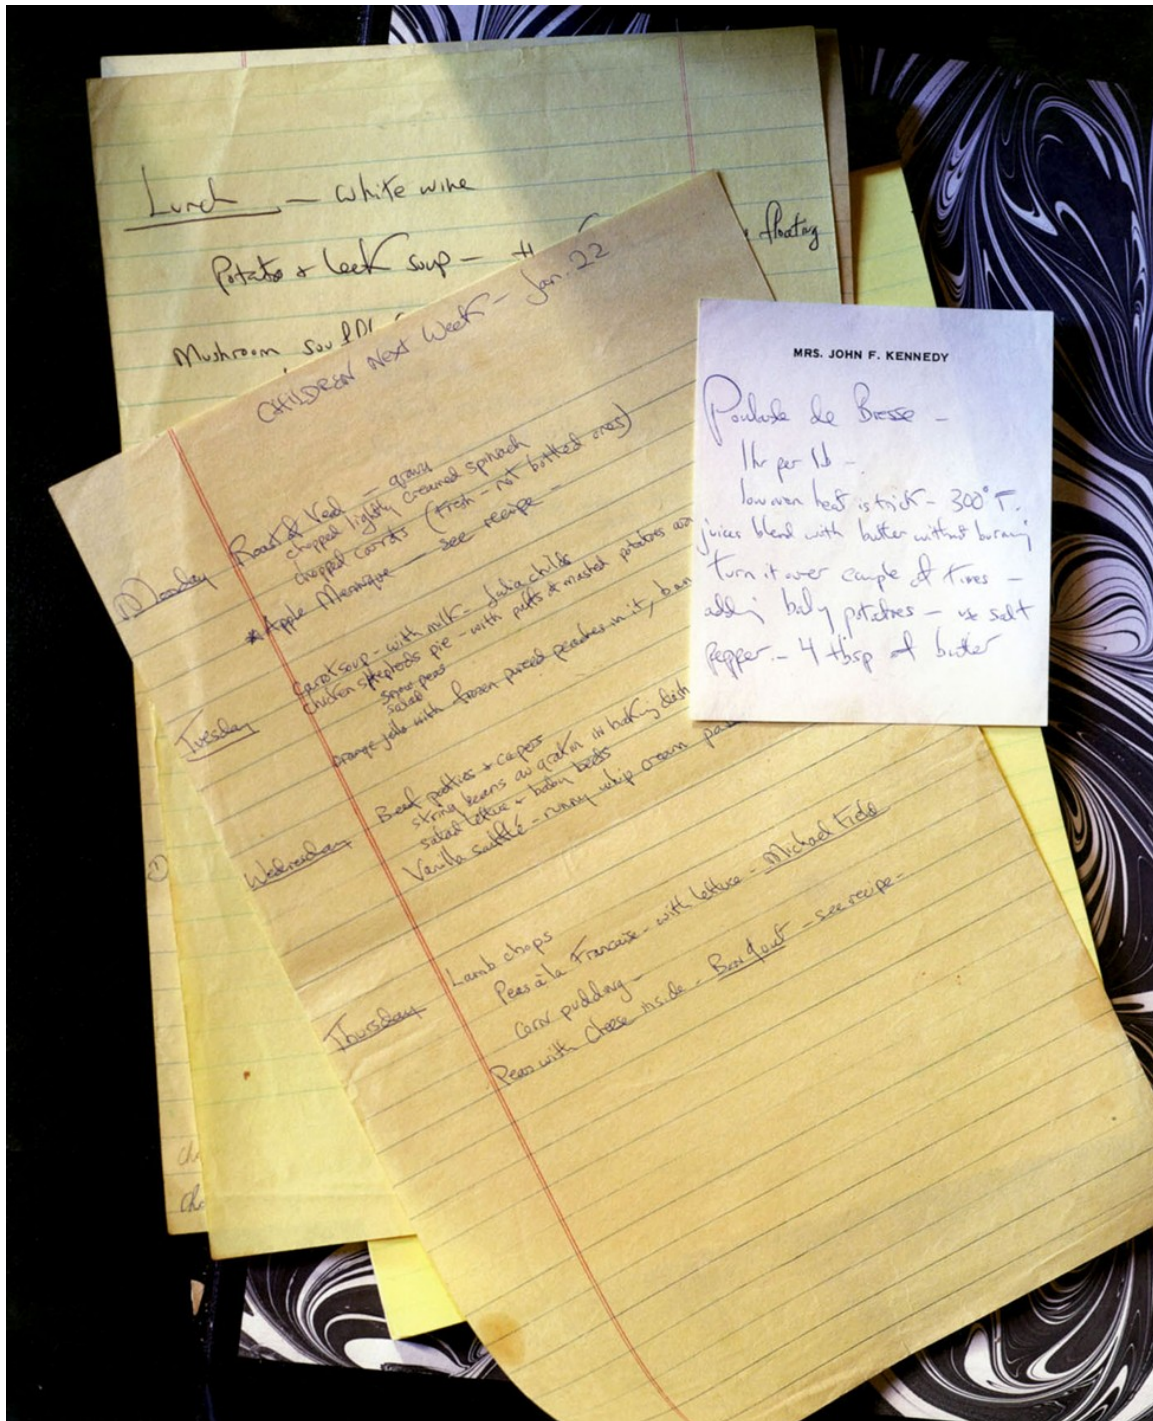 Lunch — white wine
Potato & leek soup — floating
Mushroom
CHILDREN Next Week — Jan. 22
Monday
Roast of Veal — gravy
chopped lightly creamed spinach
chopped carrots (fresh — not bottled ones)
* Apple Meringue — see recipe —
Tuesday
Carrot soup — with milk — Julia childs
Chicken shepherds pie — with puffs of mashed potatoes
snow peas
salad
orange jello with frozen pureed peaches in it,
Wednesday
Beef patties + capers
string beans au gratin in baking dish
salad lettuce + baby beets
Vanilla soufflé — runny whip cream
Thursday
Lamb chops
Peas à la Francaise — with lettuce — Michael Field
corn pudding —
Pears with cheese inside — — see recipe —
MRS. JOHN F. KENNEDY
Poularde de Bresse —
1 hr per lb —
low oven heat is trick — 300° F.
juices blend with butter without burning
turn it over couple of times —
adding baby potatoes — use salt
pepper — 4 tbsp of butter
①